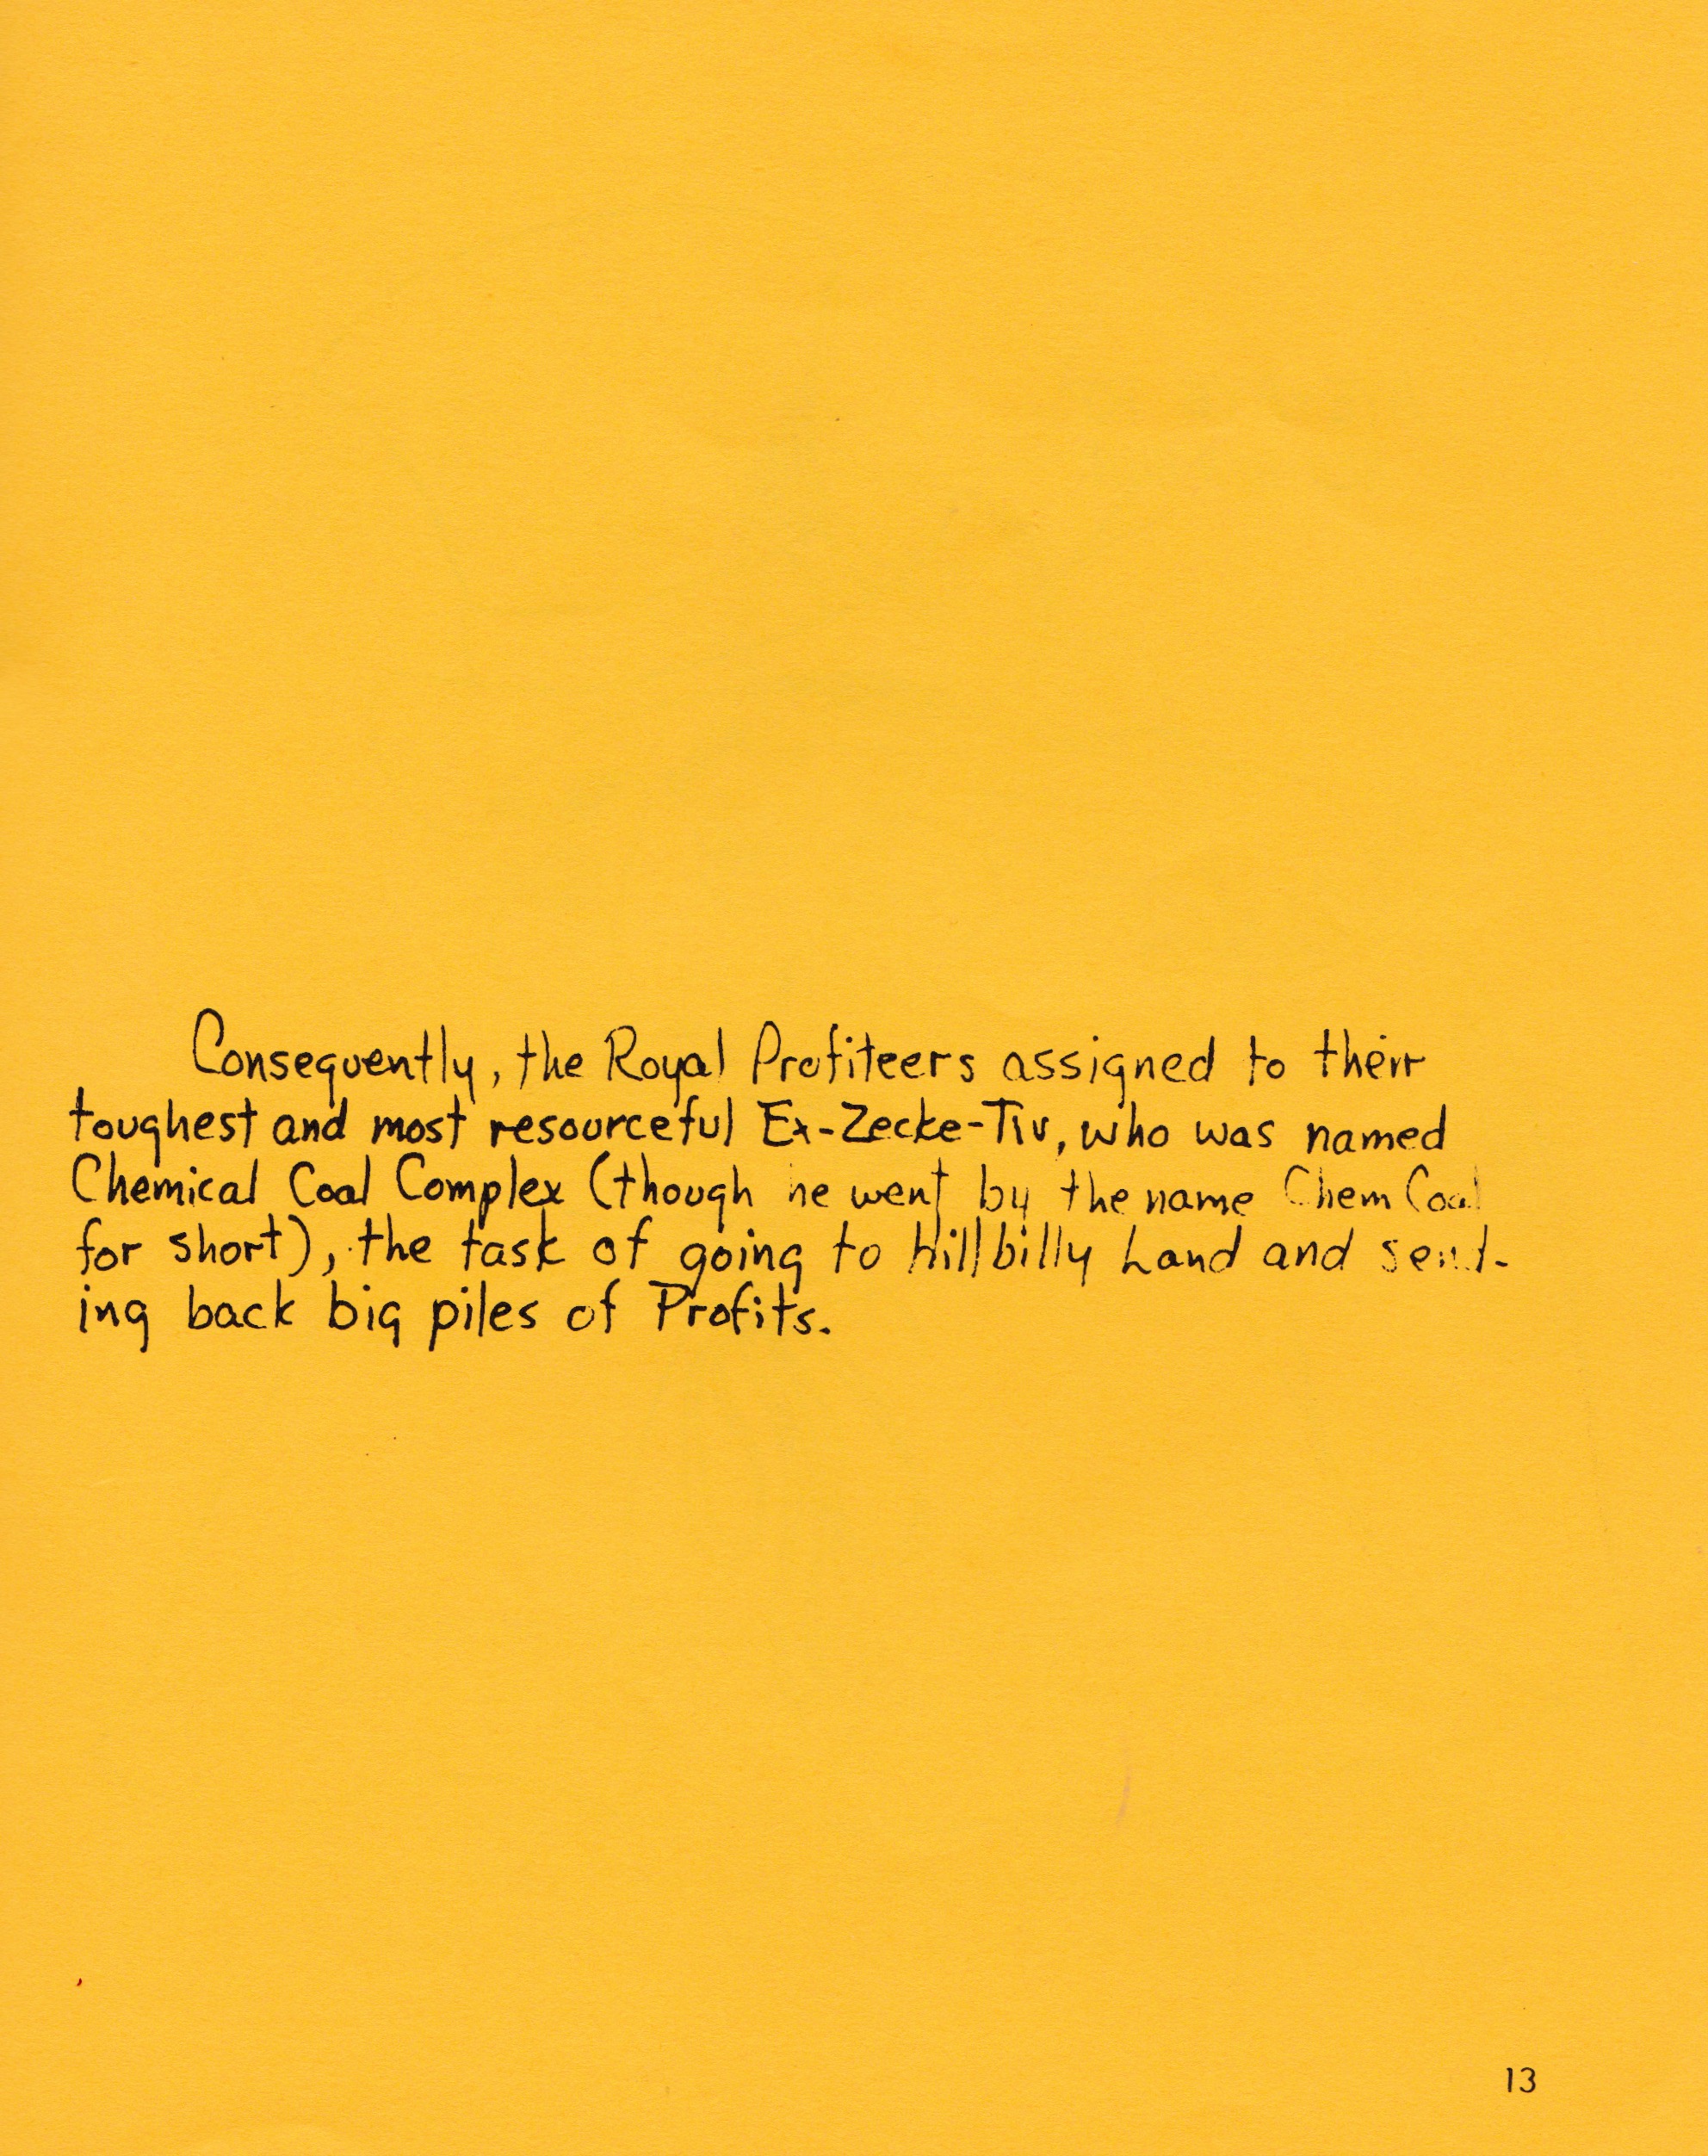 Consequently, the Royal Profiteers assigned to their
toughest and most resourceful Ex-Zecke-Tiv, who was named
Chemical Coal Complex (though he went by the name Chem Coal
for short), the task of going to Hillbilly Land and send-
ing back big piles of Profits.
13